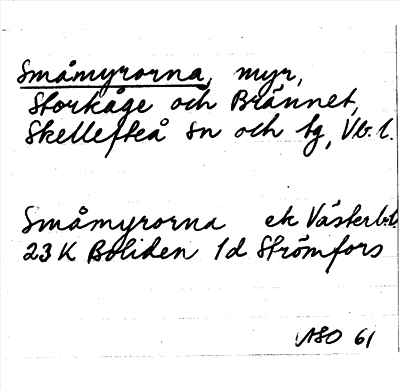 Småmyrorna, myr,
Storkåge och Brännet,
Skellefteå sn och tg, Vb. l.
Småmyrorna ek Västerb.l.
23 K Boliden 1d Strömfors
ASO 61